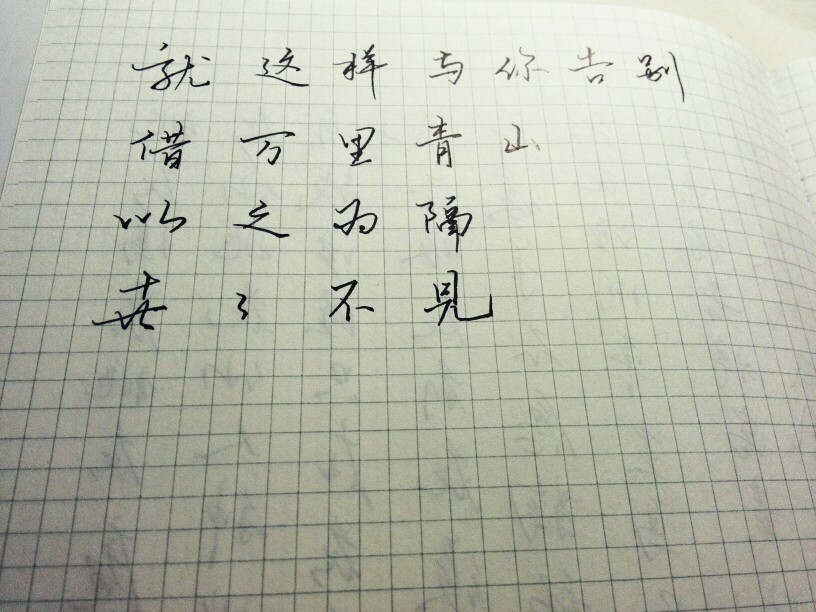 就这样与你告别
借万里青山
以之为隔
々不見